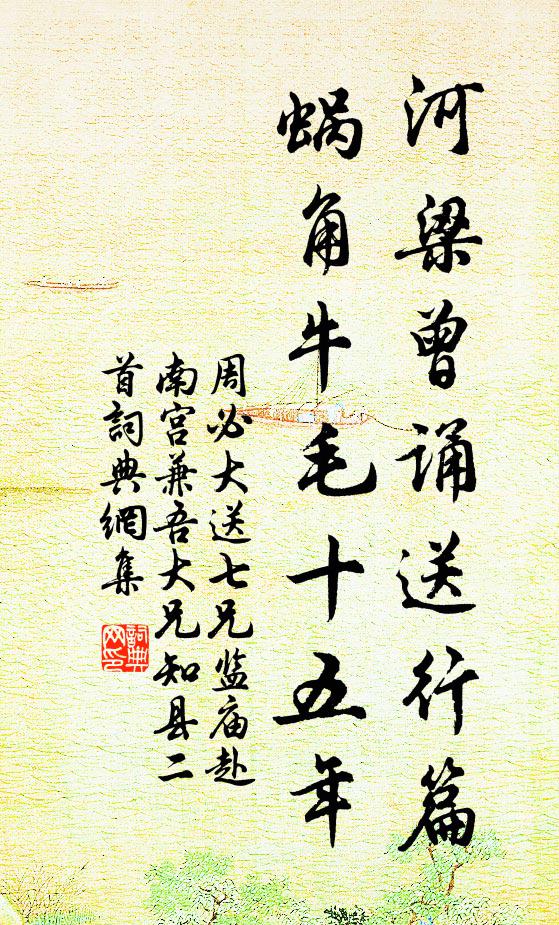 河梁曾诵送行篇
蜗角牛毛十五年
周必大送七兄监庙赴
南宫兼吾大兄知县二
首詞典網集
詞典
网印